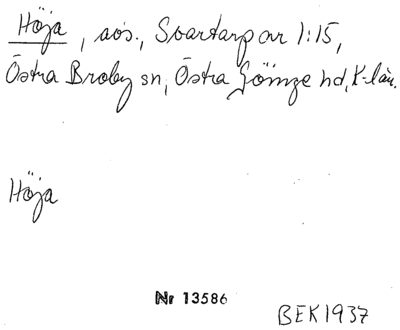 Höja, aós., Svartarp ar 1:15,
Östra Broby sn, Östra Göinge hd, K-län.
Höja
Nr 13586
BEK 1937